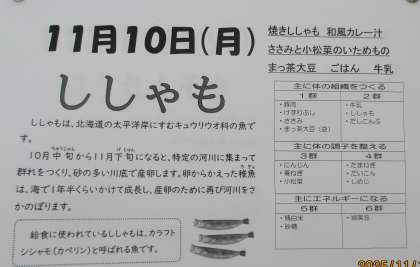 11月10日(月)
ししゃも
ししゃもは、北海道の太平洋岸にすむキュウリウオ科の魚で
す。
10月中旬から11月下旬になると、特定の河川に集まって
群れをつくり、砂の多い川底で産卵します。卵からかえった稚魚
は、海で1年半くらいかけて成長し、産卵のために再び河川をさ
かのぼります。
給食に使われているししゃもは、カラフト
シシャモ(カペリン)と呼ばれる魚です。
焼きししゃも 和風カレー汁
ささみと小松菜のいためもの
まっ茶大豆 ごはん 牛乳
主に体の組織をつくる
1群 2群
・豚肉 ・牛乳
・けずりぶし ・ししゃも
・ささみ ・だしこんぶ
・まっ茶大豆(袋)
主に体の調子を整える
3群 4群
・にんじん ・たまねぎ
・葉ねぎ ・だいこん
・小松菜 ・しめじ
主にエネルギーになる
5群 6群
・精白米
・砂糖
2025/11/